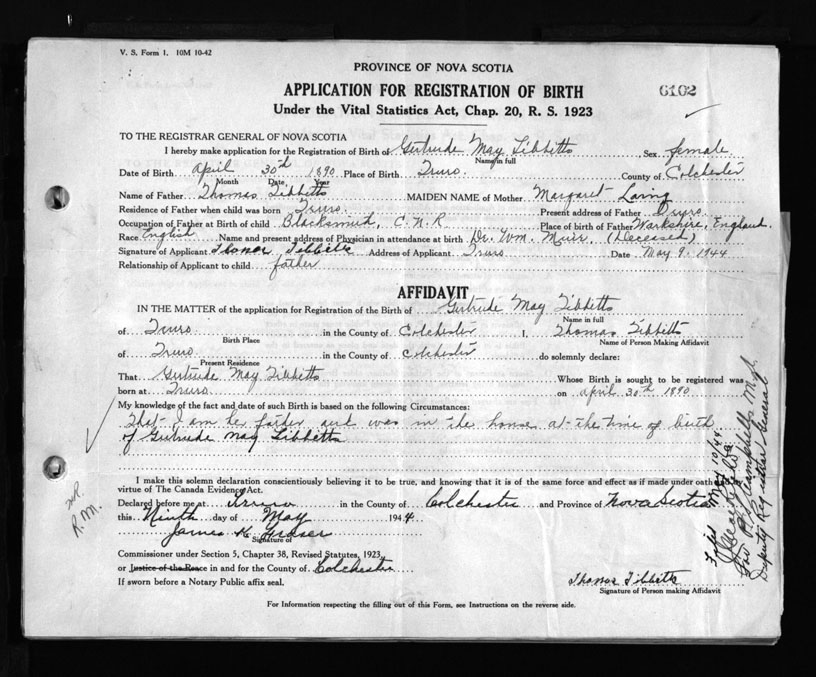 V. S. Form 1. 10M 10-42
PROVINCE OF NOVA SCOTIA
APPLICATION FOR REGISTRATION OF BIRTH
6102
Under the Vital Statistics Act, Chap. 20, R. S. 1923
TO THE REGISTRAR GENERAL OF NOVA SCOTIA
I hereby make application for the Registration of Birth of Gertrude May Tibbetts Sex female
Name in full
Date of Birth april 30th 1890 Place of Birth Truro. County of Colchester
Month Date Year
Name of Father Thomas Tibbetts MAIDEN NAME of Mother Margaret Laing
Residence of Father when child was born Truro. Present address of Father Truro.
Occupation of Father at Birth of child Blacksmith, C.N.R Place of birth of Father Warkshire, England.
Race English Name and present address of Physician in attendance at birth Dr. Wm. Muir. (Deceased)
Signature of Applicant Thomas Tibbetts Address of Applicant Truro Date May 9. 1944
Relationship of Applicant to child father
AFFIDAVIT
IN THE MATTER of the application for Registration of the Birth of Gertrude May Tibbetts
Name in full
of Truro. in the County of Colchester I, Thomas Tibbetts
Birth Place Name of Person Making Affidavit
of Truro. in the County of Colchester do solemnly declare:
Present Residence
That Gertrude May Tibbetts Whose Birth is sought to be registered was
born at Truro on april 30th 1890
My knowledge of the fact and date of such Birth is based on the following Circumstances:
That I am her father and was in the house at the time of birth
of Gertrude May Tibbetts
I make this solemn declaration conscientiously believing it to be true, and knowing that it is of the same force and effect as if made under oath and by
virtue of The Canada Evidence Act.
Declared before me at Truro in the County of Colchester and Province of Nova Scotia
this Ninth day of May 1944
James K. Fraser
Signature of
Commissioner under Section 5, Chapter 38, Revised Statutes, 1923,
or Justice of the Peace in and for the County of Colchester
If sworn before a Notary Public affix seal.
Thomas Tibbetts
Signature of Person making Affidavit
For Information respecting the filling out of this Form, see Instructions on the reverse side.
R.M.
May 10/44
for Campbell
Deputy Registrar General